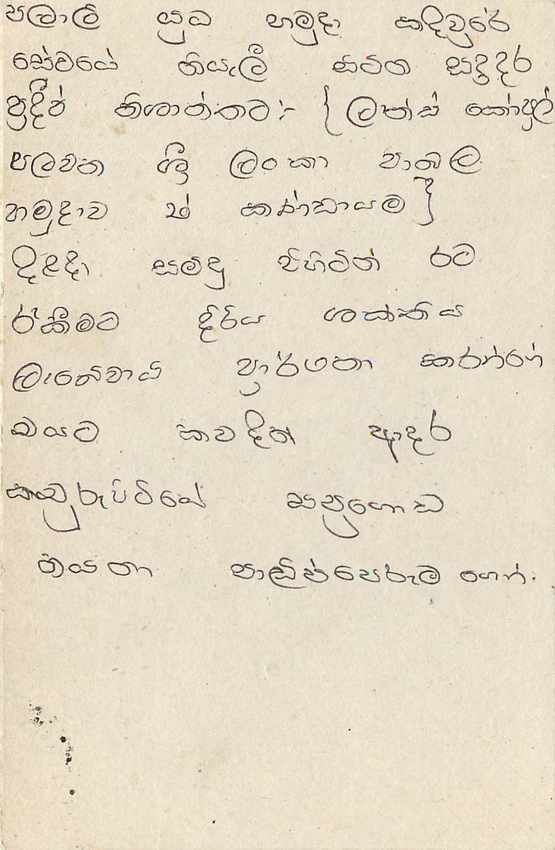 පලාලි යුධ හමුදා කඳවුරේ
සේවයේ නියැලී සිටින සදාදර
ප්‍රදීප් නිශාන්තට:- { ලාන්ස් කෝප්‍රල්
පලවන ශ්‍රී ලංකා පාබල
හමුදාව ක් කණ්ඩායම }
දිළඳා සමඳු පිහිටින් රට
රැකීමට දිරිය ශක්තිය
ලැබේවායි ප්‍රාර්ථනා කරන්නේ
ඔයට කවදත් ආදර
කළුරුප්පිටියේ සපුගොඩ
නයනා පාඩින්පෙරුම ගෙන්.